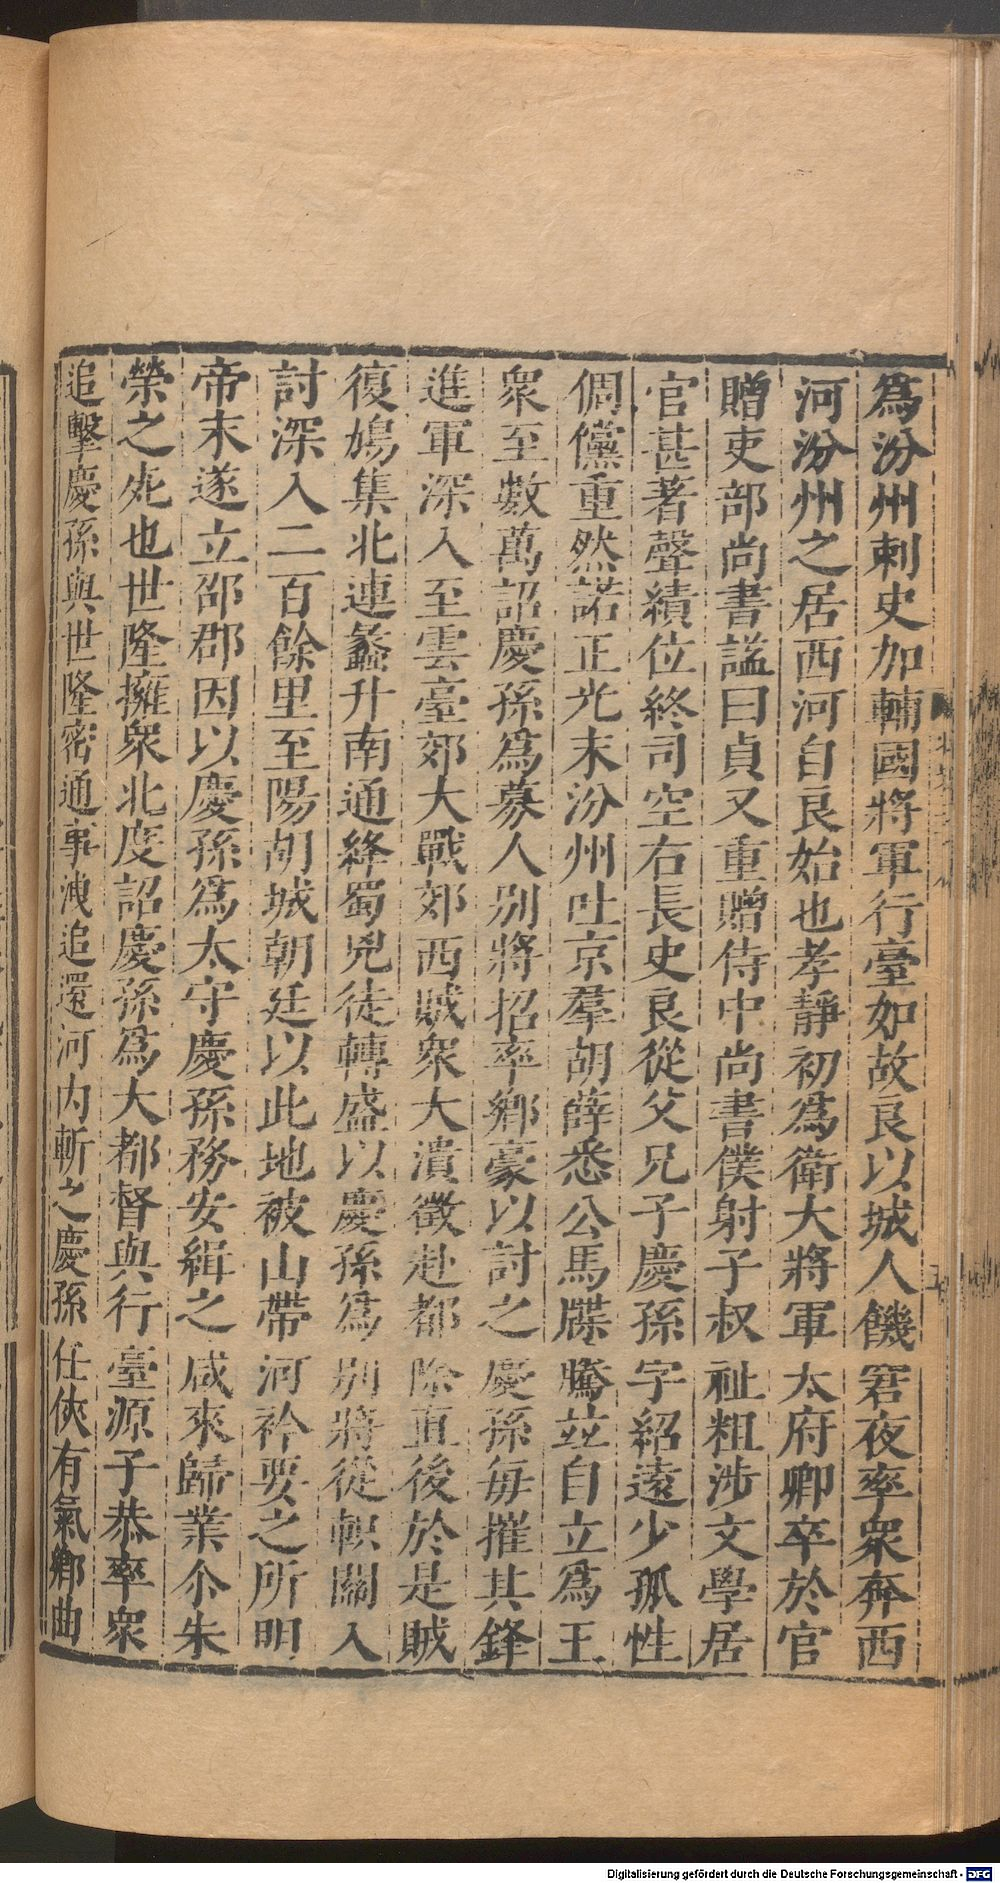 爲汾州刺史加輔國將軍行臺如故良以城人饑窘夜率衆奔西
河汾州之居西河自良始也孝靜初爲衛大將軍太府卿卒於官
贈吏部尚書謚曰貞又重贈侍中尚書僕射子叔祉粗涉文學居
官甚著聲績位終司空右長史良從父兄子慶孫字紹遠少孤性
倜儻重然諾正光末汾州吐京羣胡薛悉公馬牒騰並自立爲王
衆至數萬詔慶孫爲募人別將招率鄉豪以討之慶孫每摧其鋒
進軍深入至雲臺郊大戰郊西賊衆大潰徵赴都除直後於是賊
復鳩集北連蠡升南通絳蜀兇徒轉盛以慶孫爲別將從軹關入
討深入二百餘里至陽胡城朝廷以此地被山帶河衿要之所明
帝末遂立邵郡因以慶孫爲太守慶孫務安緝之咸來歸業尒朱
榮之死也世隆擁衆北度詔慶孫爲大都督與行臺源子恭率衆
追擊慶孫與世隆密通事洩追還河内斬之慶孫任俠有氣鄉曲
Digitalisierung gefördert durch die Deutsche Forschungsgemeinschaft - DFG